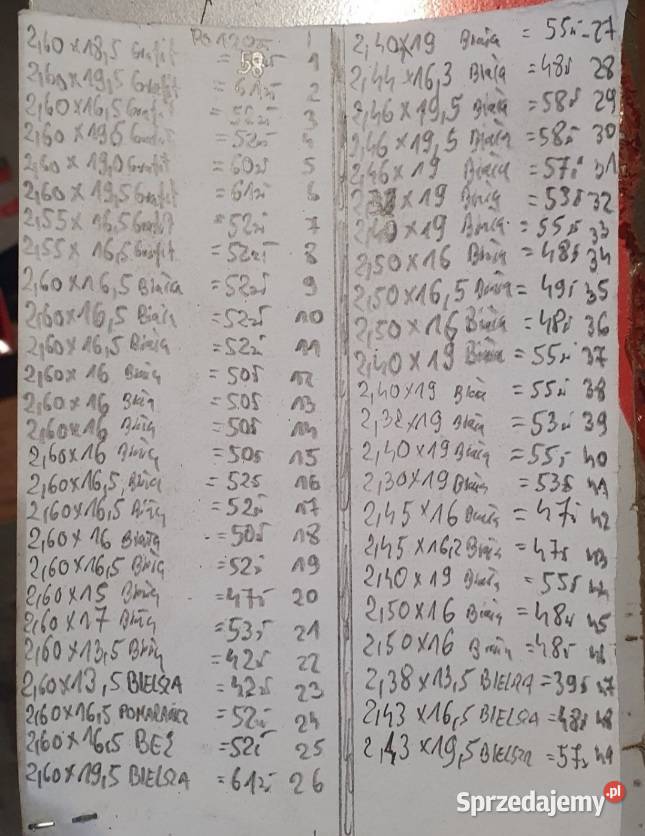 2,60x18,5 Grafit = 58zł 1
2,60x19,5 Grafit = 61zł 2
2,60x16,5 Grafit = 52zł 3
2,60x16,5 Grafit = 52zł 4
2,60x19,0 Grafit = 60zł 5
2,60x19,5 Grafit = 61zł 6
2,55x16,5 Grafit = 52zł 7
2,55x16,5 Grafit = 52zł 8
2,60x16,5 Biała = 52zł 9
2,60x16,5 Biała = 52zł 10
2,60x16,5 Biała = 52zł 11
2,60x16 Biała = 50zł 12
2,60x16 Biała = 50zł 13
2,60x16 Biała = 50zł 14
2,60x16 Biała = 50zł 15
2,60x16,5 Biała = 52zł 16
2,60x16,5 Biała = 52zł 17
2,60x16 Biała = 50zł 18
2,60x16,5 Biała = 52zł 19
2,60x15 Biała = 47zł 20
2,60x17 Biała = 53zł 21
2,60x13,5 Biała = 42zł 22
2,60x13,5 BIELSZA = 42zł 23
2,60x16,5 POMARAŃCZ = 52zł 24
2,60x16,5 BEŻ = 52zł 25
2,60x19,5 BIELSZA = 61zł 26
2,40x19 Biała = 55zł 27
2,44x16,3 Biała = 48zł 28
2,46x19,5 Biała = 58zł 29
2,46x19,5 Biała = 58zł 30
2,46x19 Biała = 57zł 31
x19 Biała = 53zł 32
2,40x19 Biała = 55zł 33
2,50x16 Biała = 48zł 34
2,50x16,5 Biała = 49zł 35
2,50x16 Biała = 48zł 36
2,40x19 Biała = 55zł 37
2,40x19 Biała = 55zł 38
2,32x19 Biała = 53zł 39
2,40x19 Biała = 55zł 40
2,30x19 Biała = 53zł 41
2,45x16 Biała = 47zł 42
2,45x16,2 Biała = 47zł 43
2,40x19 Biała = 55zł 44
2,50x16 Biała = 48zł 45
2,50x16 Biała = 48zł 46
2,38x13,5 BIELSZA = 39zł 47
2,43x16,5 BIELSZA = 48zł 48
2,43x19,5 BIELSZA = 57zł 49
Sprzedajemy.pl